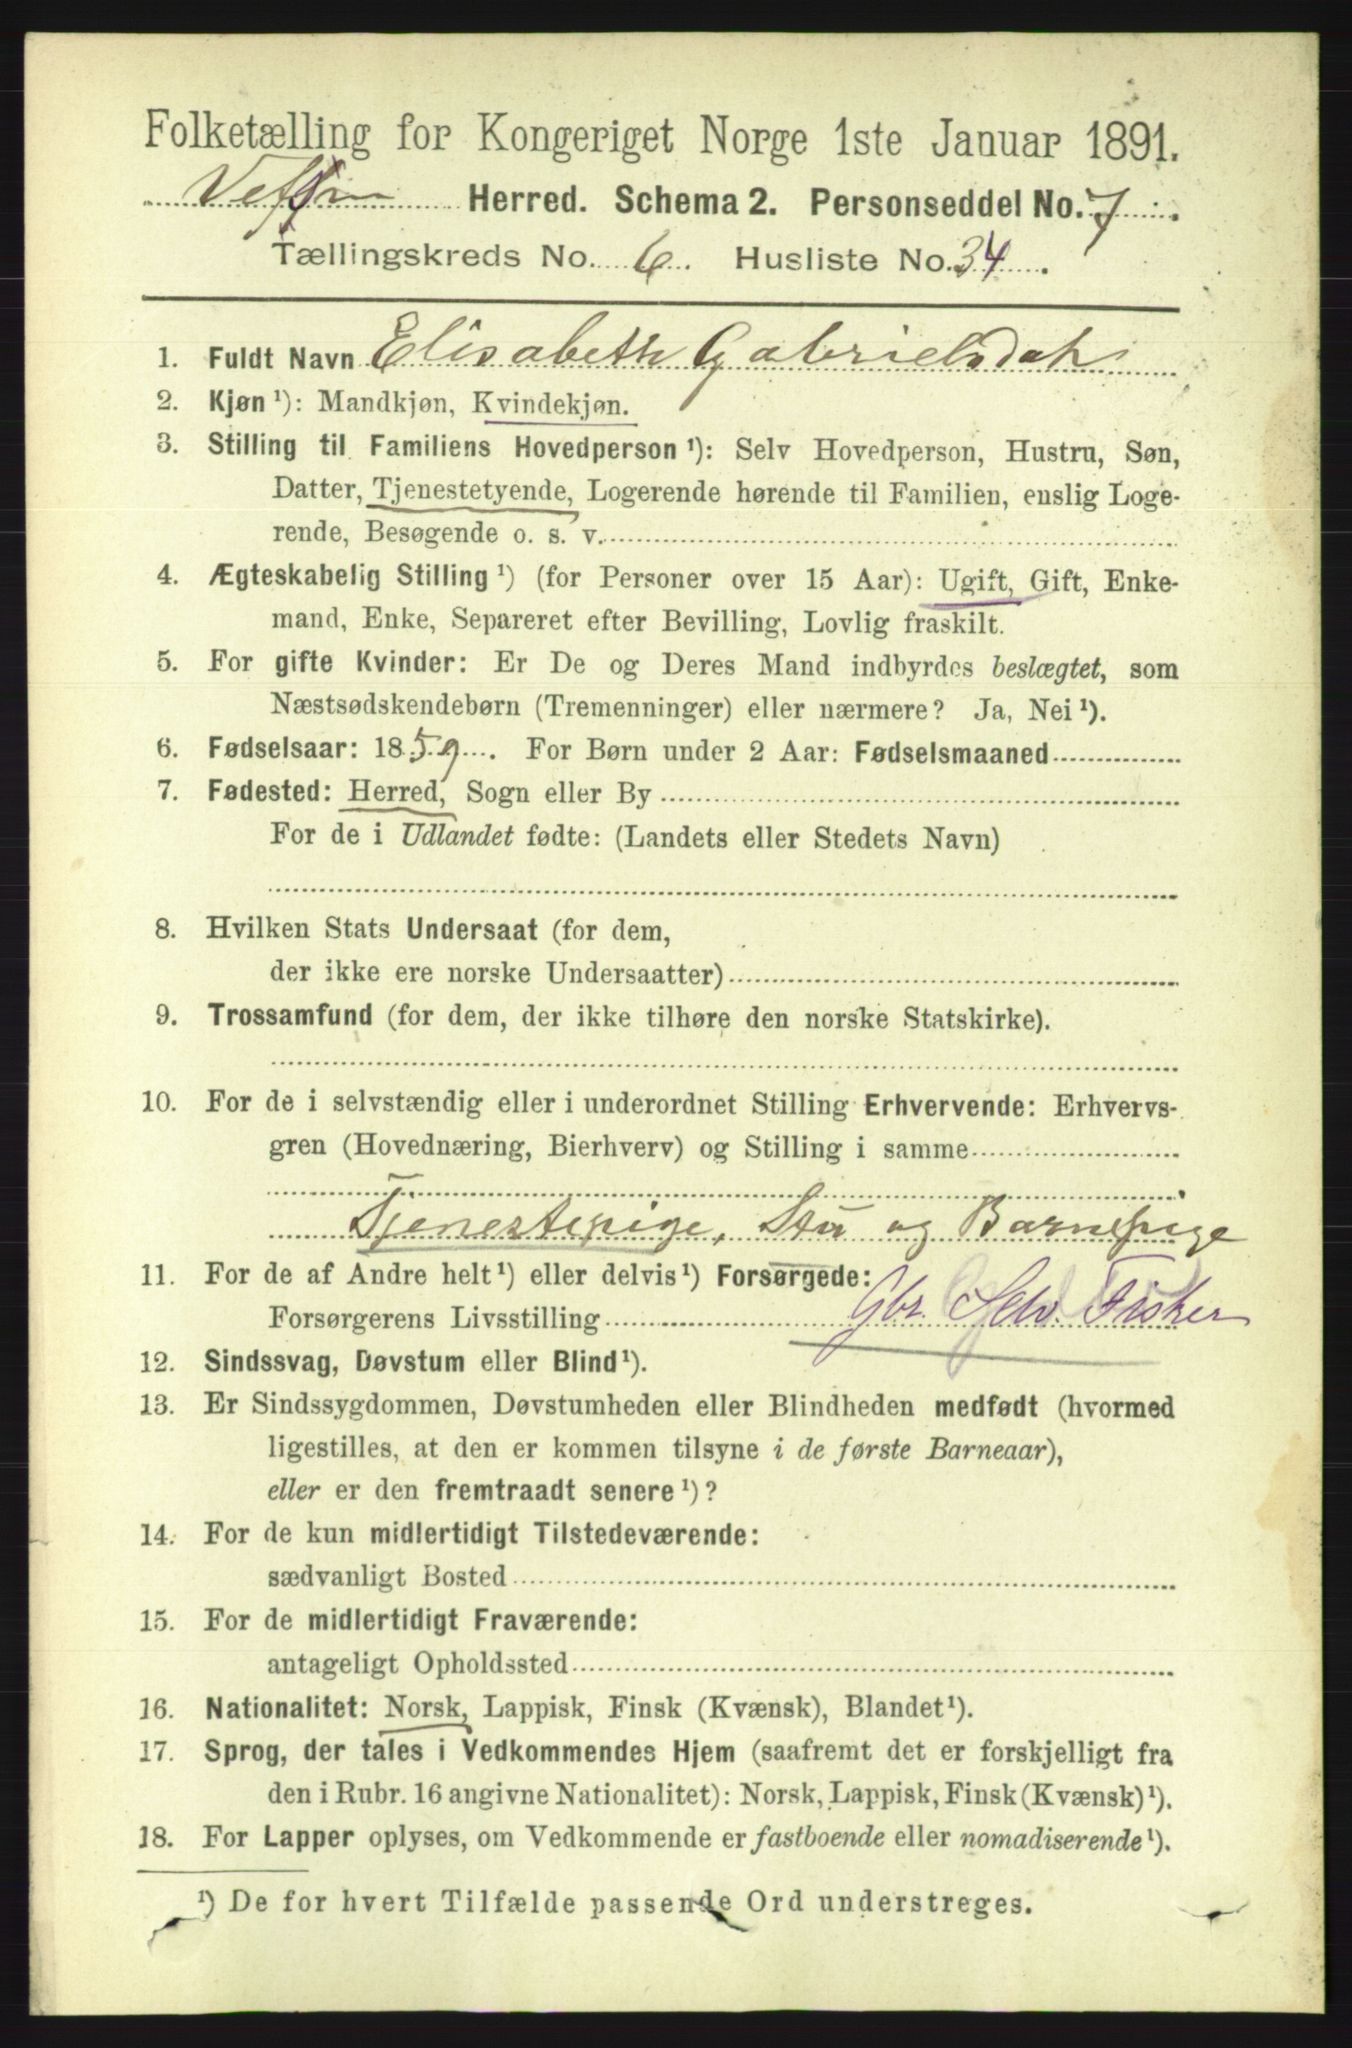 Folketælling for Kongeriget Norge 1ste Januar 1891.
Vefsn Herred. Schema 2. Personseddel No. 7.
Tællingskreds No. 6. Husliste No. 34.
1. Fuldt Navn Elisabeth Gabrielsdat
2. Kjøn ¹): Mandkjøn, Kvindekjøn.
3. Stilling til Familiens Hovedperson ¹): Selv Hovedperson, Hustru, Søn,
Datter, Tjenestetyende, Logerende hørende til Familien, enslig Loge-
rende, Besøgende o. s. v.
4. Ægteskabelig Stilling ¹) (for Personer over 15 Aar): Ugift, Gift, Enke-
mand, Enke, Separeret efter Bevilling, Lovlig fraskilt.
5. For gifte Kvinder: Er De og Deres Mand indbyrdes beslægtet, som
Næstsødskendebørn (Tremenninger) eller nærmere? Ja, Nei ¹).
6. Fødselsaar: 1859. For Børn under 2 Aar: Fødselsmaaned
7. Fødested: Herred, Sogn eller By
For de i Udlandet fødte: (Landets eller Stedets Navn)
8. Hvilken Stats Undersaat (for dem,
der ikke ere norske Undersaatter)
9. Trossamfund (for dem, der ikke tilhøre den norske Statskirke).
10. For de i selvstændig eller i underordnet Stilling Erhvervende: Erhvervs-
gren (Hovednæring, Bierhverv) og Stilling i samme
Tjenestepige, Stu og Barnepige
11. For de af Andre helt ¹) eller delvis ¹) Forsørgede:
Forsørgerens Livsstilling Gbr. Selv. Fisker
12. Sindssvag, Døvstum eller Blind ¹).
13. Er Sindssygdommen, Døvstumheden eller Blindheden medfødt (hvormed
ligestilles, at den er kommen tilsyne i de første Barneaar),
eller er den fremtraadt senere ¹)?
14. For de kun midlertidigt Tilstedeværende:
sædvanligt Bosted
15. For de midlertidigt Fraværende:
antageligt Opholdssted
16. Nationalitet: Norsk, Lappisk, Finsk (Kvænsk), Blandet ¹).
17. Sprog, der tales i Vedkommendes Hjem (saafremt det er forskjelligt fra
den i Rubr. 16 angivne Nationalitet): Norsk, Lappisk, Finsk (Kvænsk) ¹).
18. For Lapper oplyses, om Vedkommende er fastboende eller nomadiserende ¹).
¹) De for hvert Tilfælde passende Ord understreges.